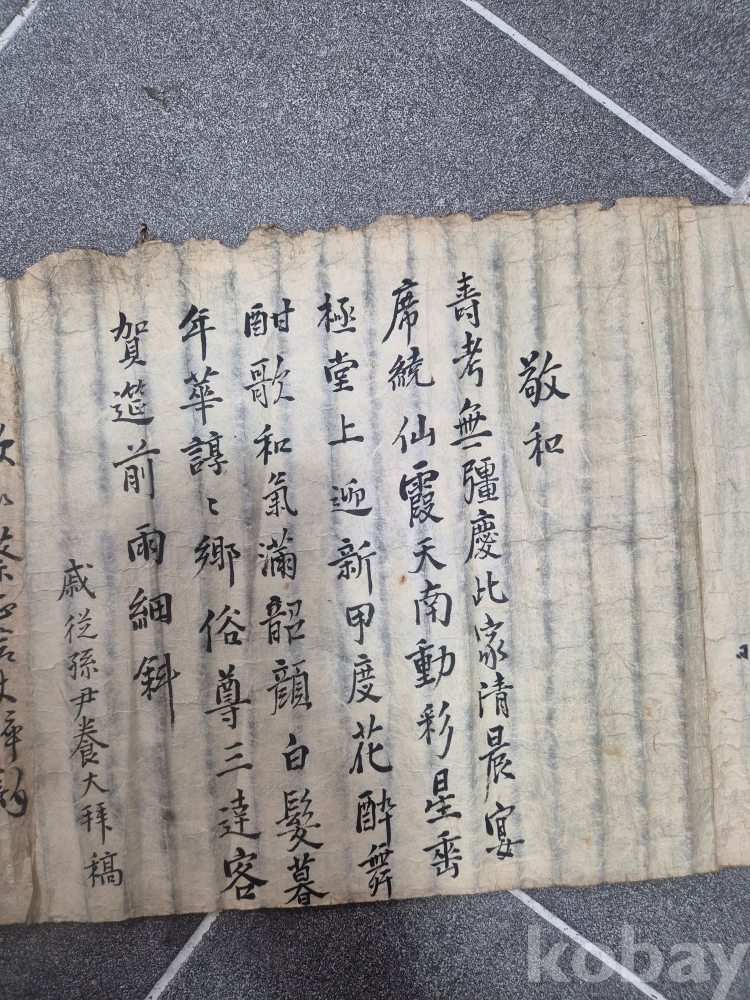 敬和
壽考無彊慶此家清晨宴
席繞仙霞天南動彩星垂
極堂上迎新甲度花醉舞
酣歌和氣滿韶顔白髮暮
年華諄〻鄉俗尊三達客
賀筵前雨細斜
戚從孫尹養大拜稿
kobay